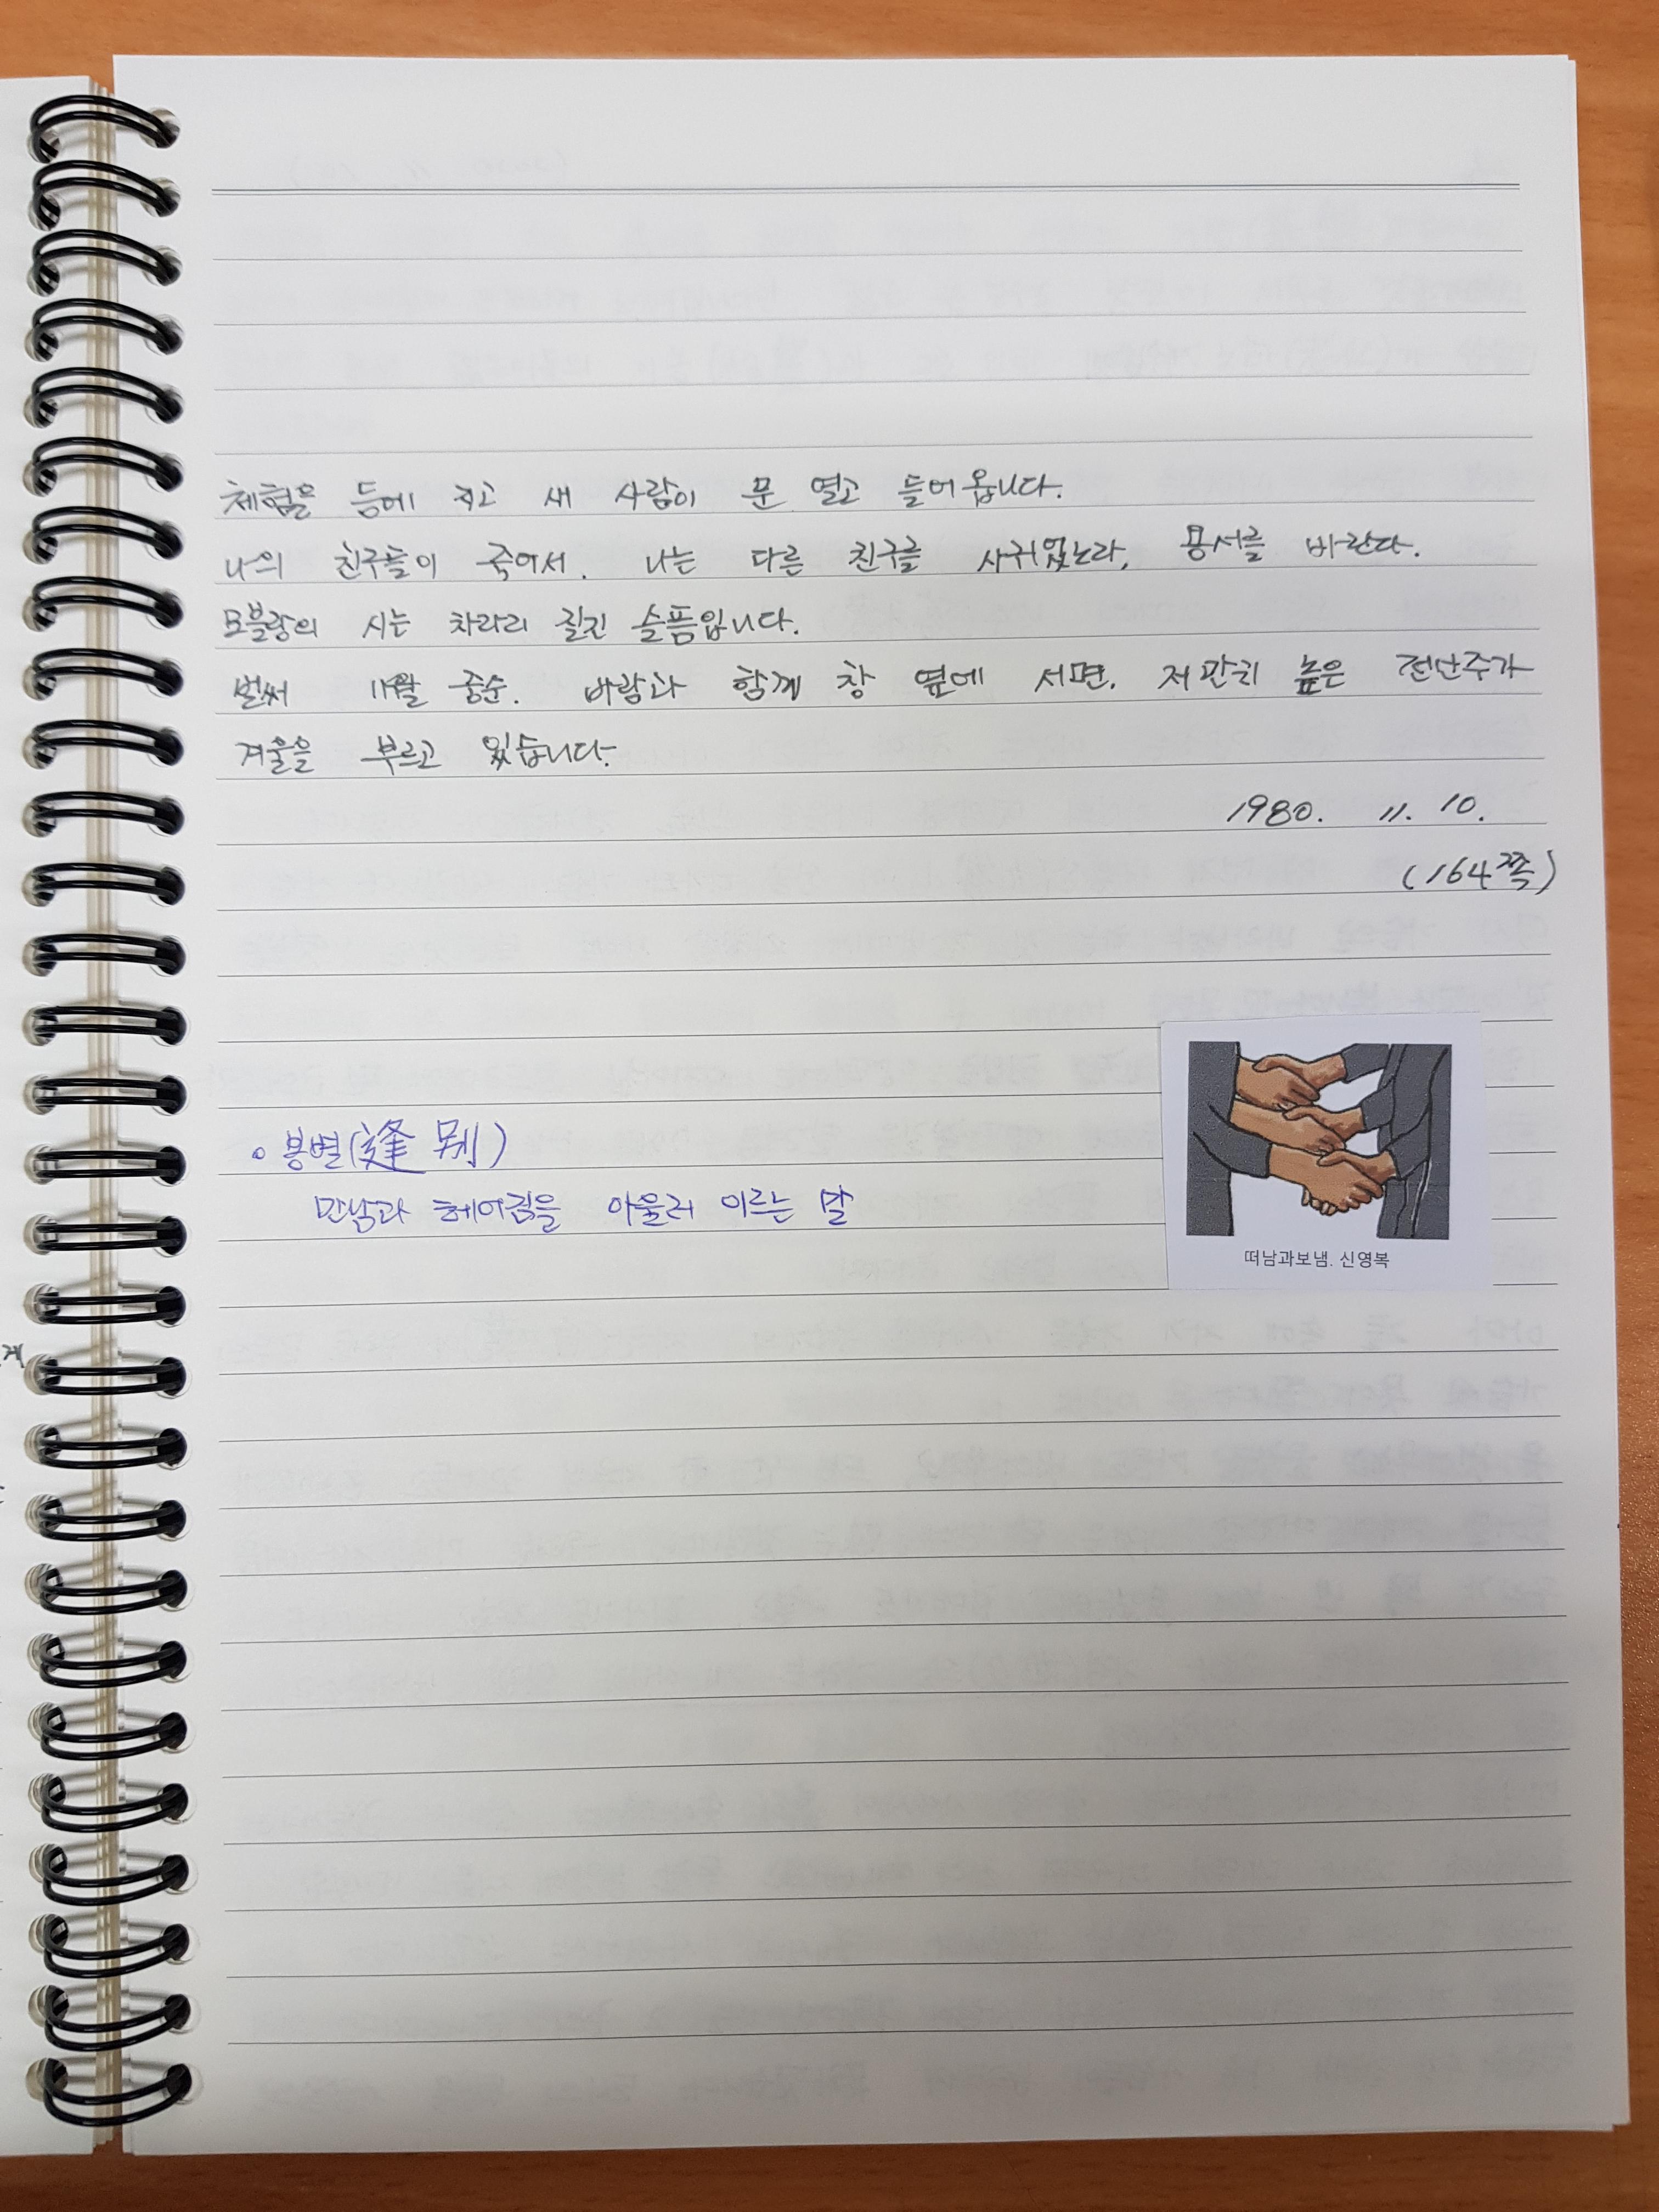 체험을 등에 지고 새 사람이 문 열고 들어옵니다.
나의 친구들이 죽어서, 나는 다른 친구를 사귀었노라, 용서를 바란다.
모블랑의 시는 차라리 질긴 슬픔입니다.
벌써 11월 중순. 바람과 함께 창 옆에 서면, 저만치 높은 전신주가
겨울을 부르고 있습니다.
1980. 11. 10.
(164쪽)
떠남과보냄. 신영복
◦ 봉별(逢別)
만남과 헤어짐을 아울러 이르는 말